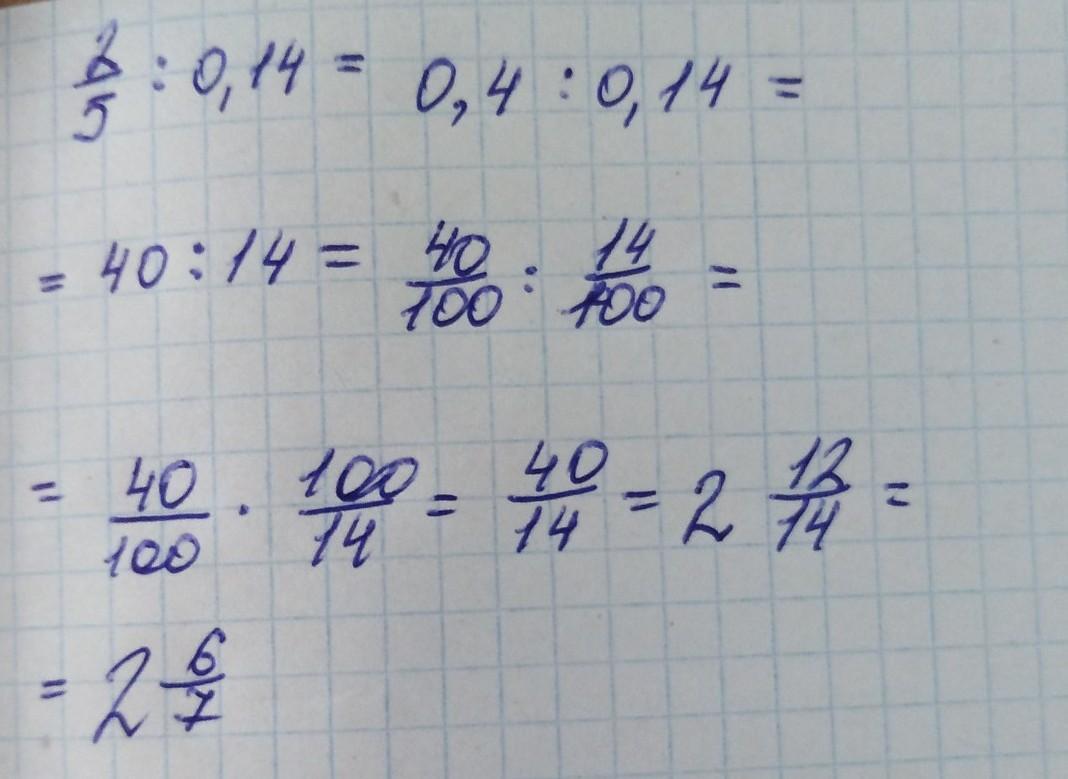 2/5 : 0,14 = 0,4 : 0,14 =
= 40 : 14 = 40/100 : 14/100 =
= 40/100 · 100/14 = 40/14 = 2 12/14 =
= 2 6/7